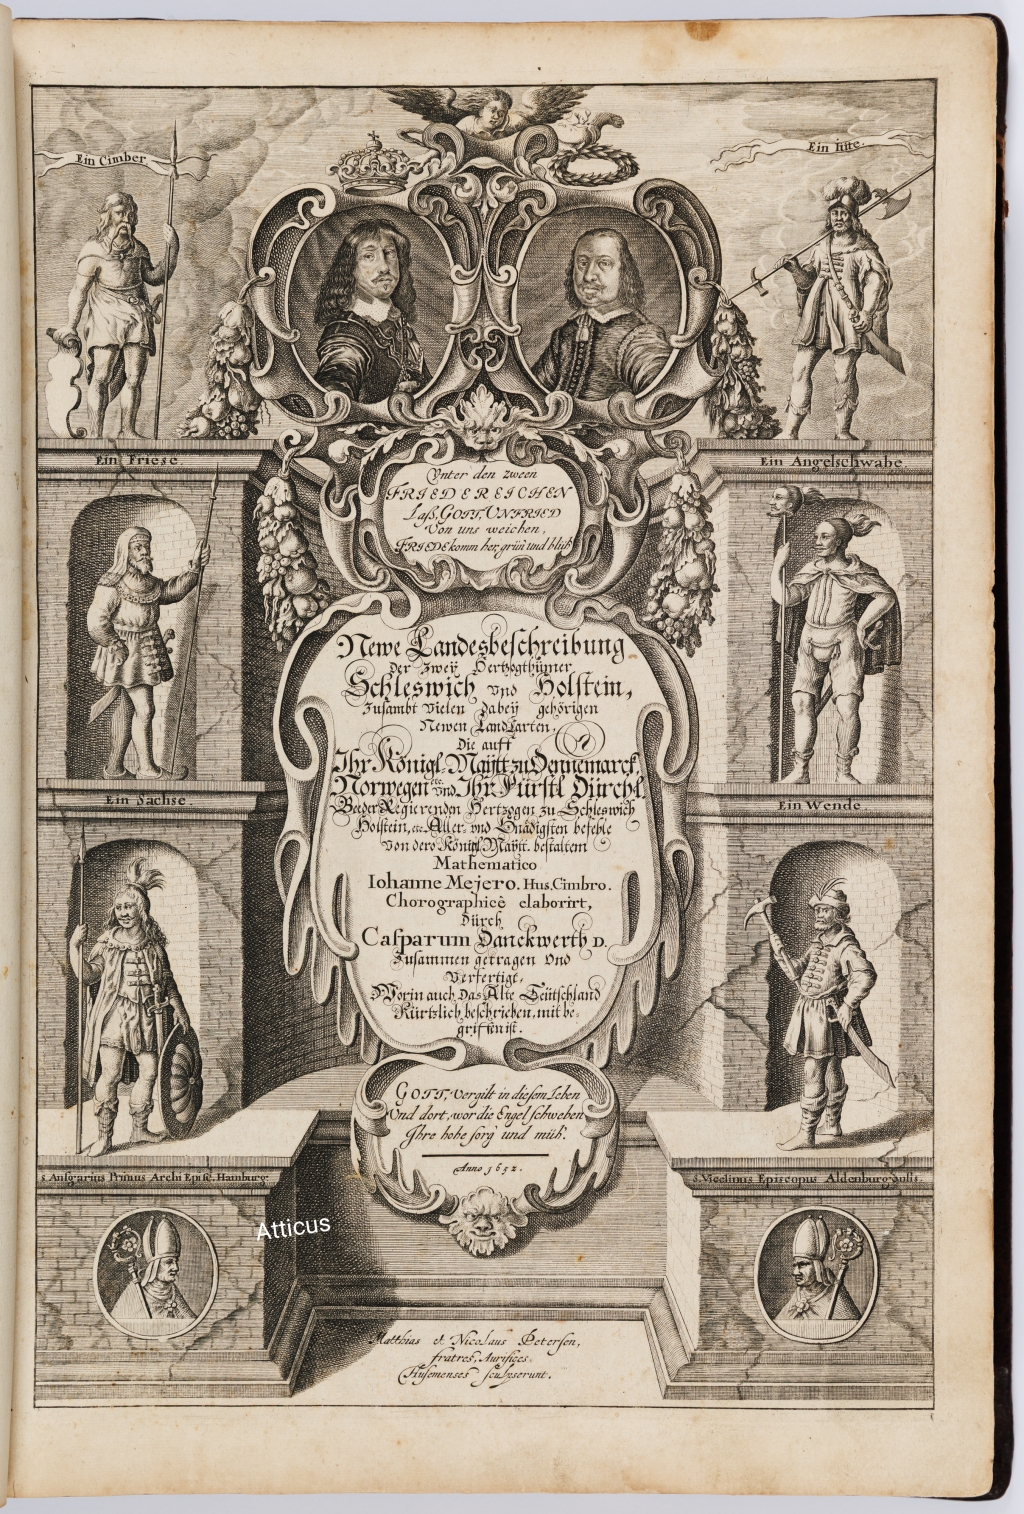 Ein Cimber.
Ein Iüte.
Ein Friese.
Ein Angelschwabe
Vnter den zween
FRIEDEREICHEN
Laß, GOTT, VNFRIED
Von uns weichen,
FRIEDE komm her, grün und blüh
Newe Landesbeschreibung
Der Zweÿ Hertzogthümer
Schleswich vnd Holstein,
Zusambt Vielen dabeÿ gehörigen
Newen LandCarten,
Die auff
Ihr Königl. Maÿtt zu Dennemarck,
Norwegen etc. vnd Ihr Fürstl Dürchl.
Beeder Regierenden Hertzogen zu Schleswich
Holstein, etc. Aller- vnd Gnädigsten befehle
Von dero Königl. Maÿtt. bestaltem
Mathematico
Iohanne Mejero. Hus. Cimbro.
Chorographicè elaborirt,
Dürch
Casparum Danckwerth D.
Zusammen getragen Vnd
Verfertigt,
Worin auch Das Alte Teütschland
Kürtzlich beschrieben, mit be=
griffen ist.
Ein Sachse.
Ein Wende.
GOTT, vergilt in diesem Leben
Vnd dort, wor die Engel schweben
Ihre hohe sorg und müh.
Anno 1652.
S. Ansgarius Primus Archi Episc. Hamburg:
S. Vicelinus Episcopus Aldenburgensis.
Atticus
Matthias et Nicolaus Petersen,
fratres, Aurifices
Husemenses sculpserunt.